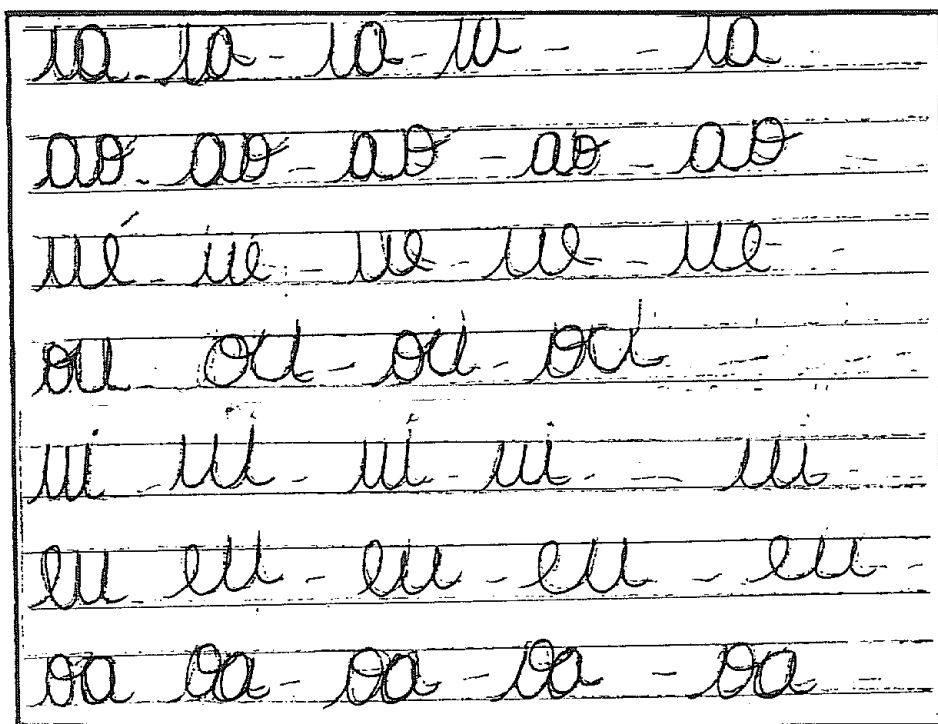 ia - ia - ia - ia - - ia
ao - ao - ao - ao - ao
ué - ue - ue - ue - ue -
ou - ou - ou - ou
ui - ui - ui - ui - - ui -
eu eu - eu - eu - eu -
oa oa - oa - oa - oa -